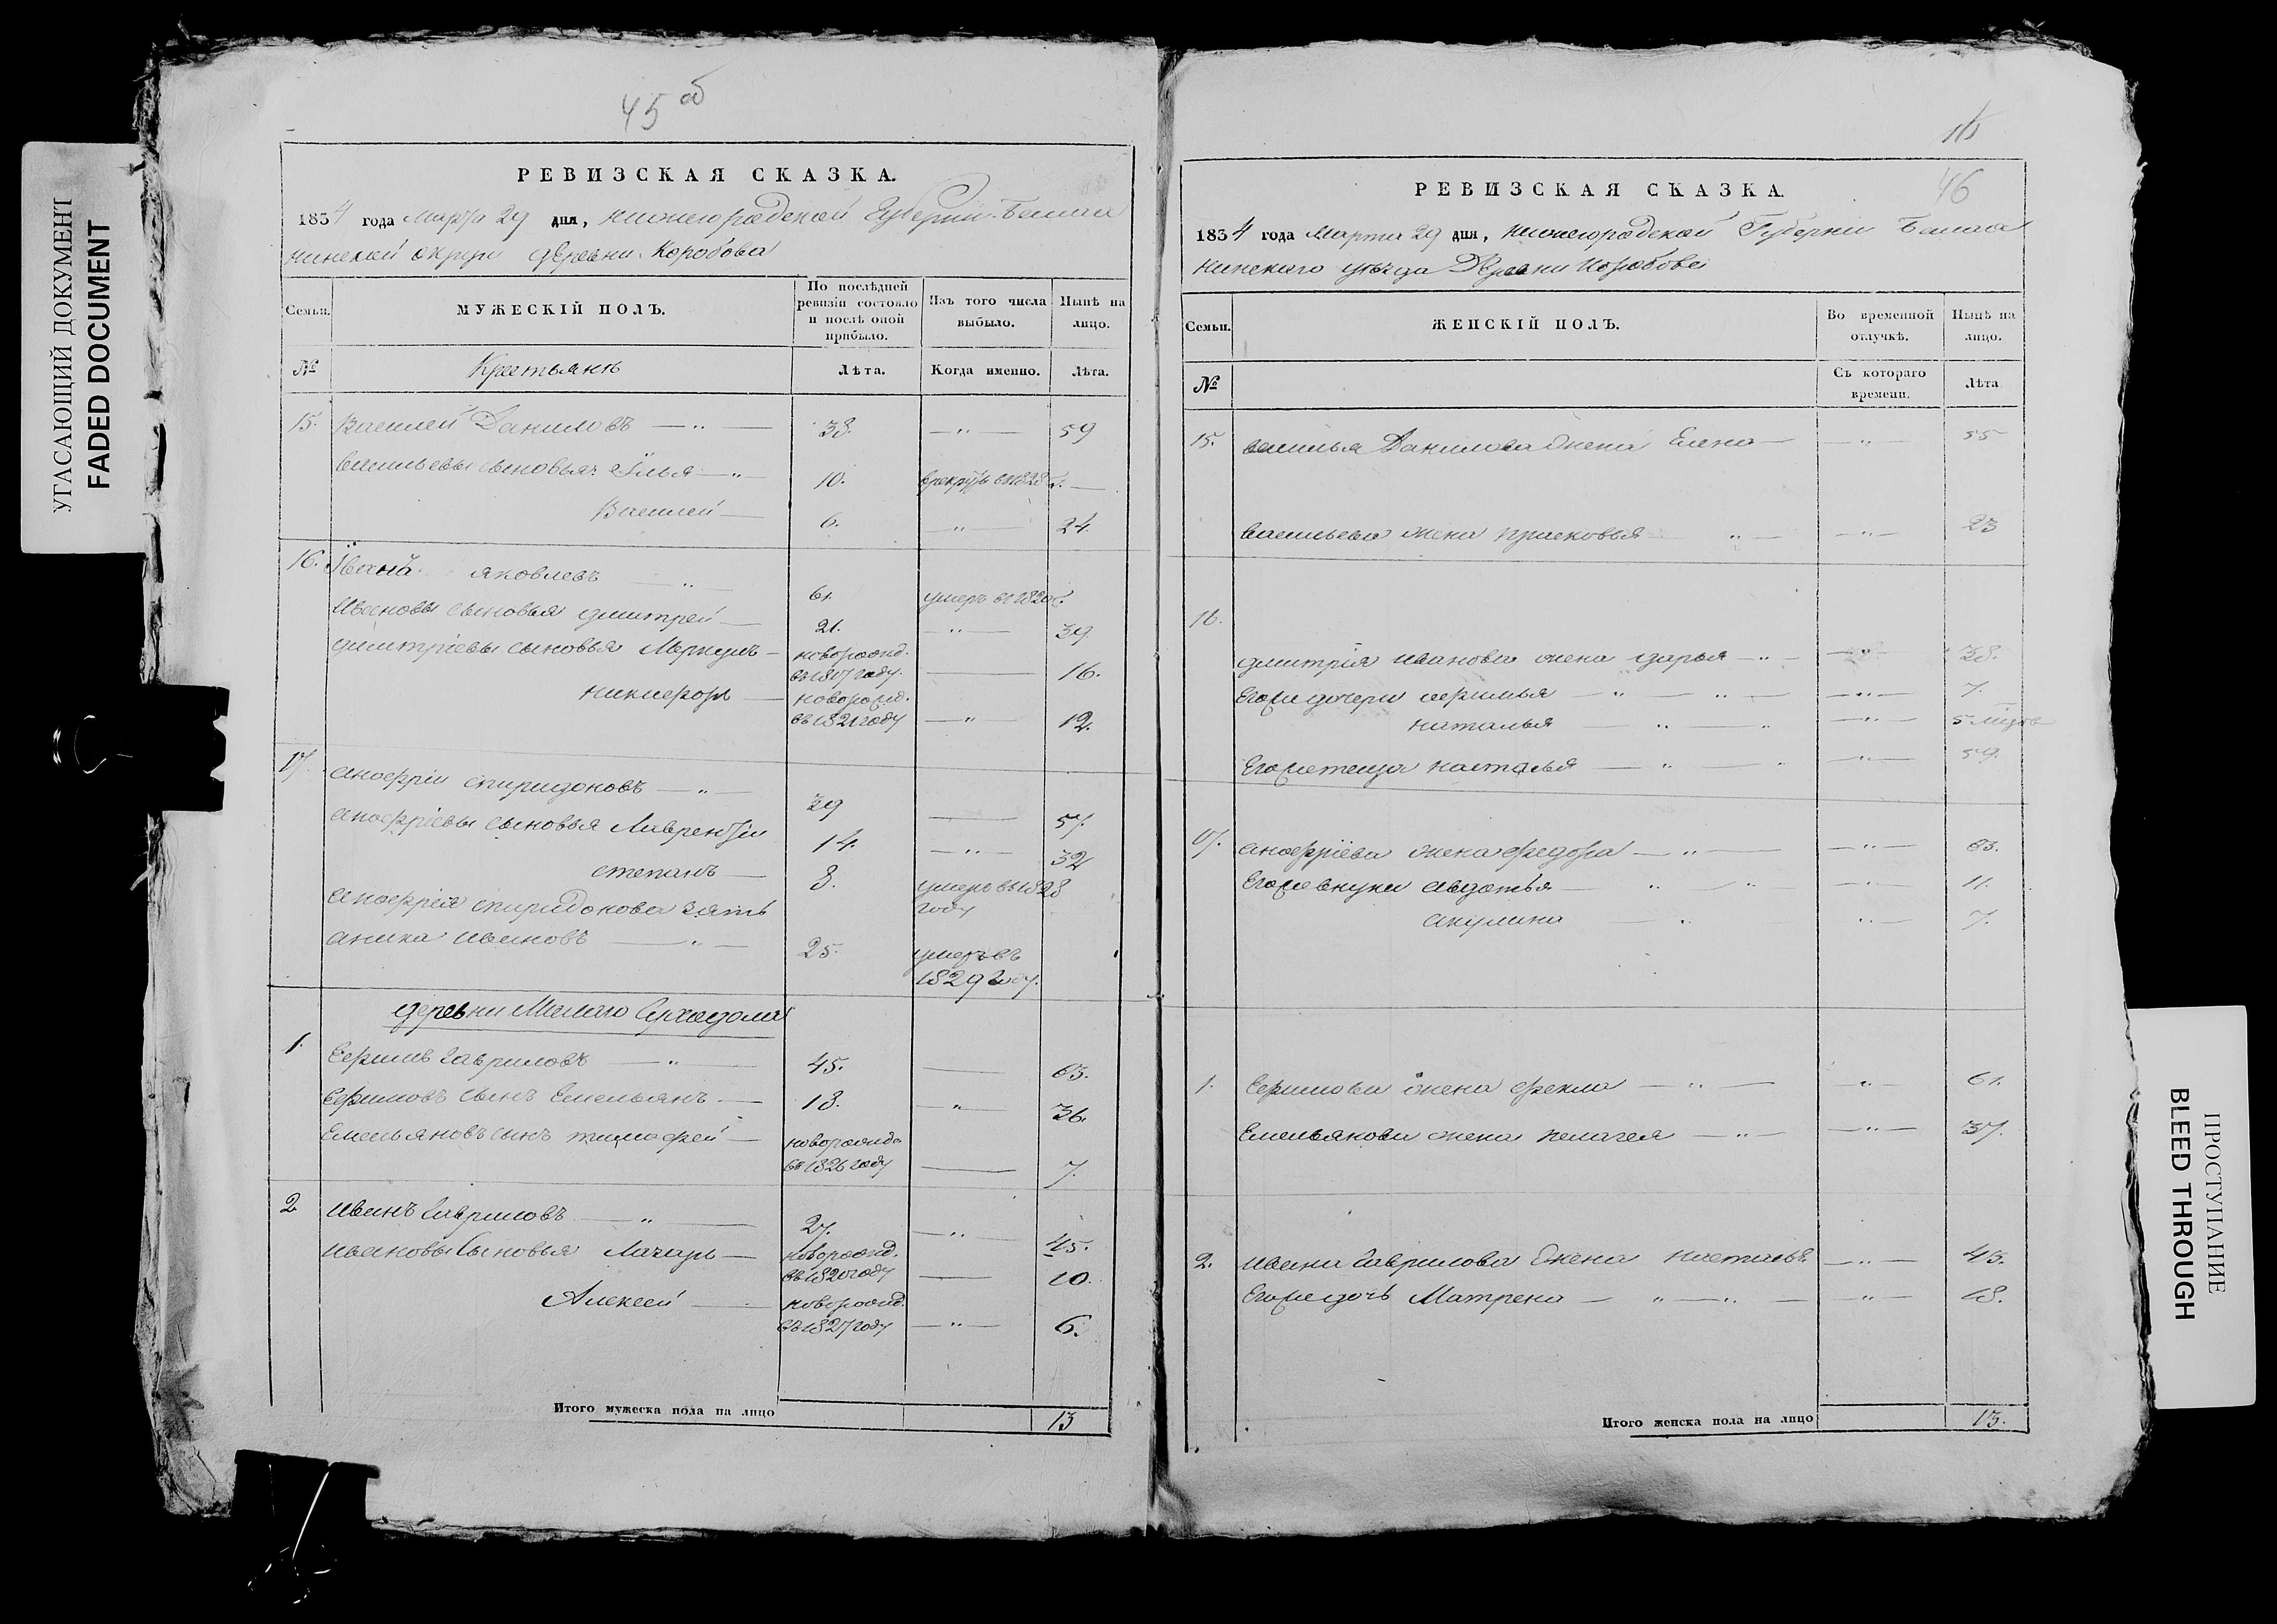 УГАСАЮЩИЙ ДОКУМЕНТ
FADED DOCUMENT
45 об
РЕВИЗСКАЯ СКАЗКА.
1834 года Марта 29 дня, Нижегородской Губернии Балах
нинской округи деревни Коробова
Семьи.
МУЖЕСКІЙ ПОЛЪ.
По послѣдней ревизіи состояло и послѣ оной прибыло.
Изъ того числа выбыло.
Нынѣ на лицо.
№
Крестьянъ
Лѣта.
Когда именно.
Лѣта.
15. Василей Даниловъ — „ — 38. — „ — 59
Васильевы сыновья Илья — „ — 10. в рекруты въ 1828 г. —
Василей — 6. — „ — 24
16. Иванъ яковлевъ — „ 61. умеръ въ 1820 г.
Ивановы сыновья дмитрей — 21. — „ — 39.
дмитріевы сыновья Меркулъ — новорожд.
въ 1817 году. — 16.
никифоръ — новорожд.
въ 1821 году — „ — 12.
17. анофріи спиридоновъ — „ — 39 — 57.
анофріевы сыновья Лаврентіи 14. — „ — 32
степанъ — 8. умеръ въ 1828
году
анофрія спиридонова зять
аника ивановъ — „ — 25. умеръ въ
1829 году.
деревни Малаго Суходола
1. Ефимъ гавриловъ — „ — 45. — 63.
Ефимовъ сынъ Емельянъ — 18. — „ — 36.
Емельяновъ сынъ тимофей — новорожд.
въ 1826 году — 7.
2. иванъ гавриловъ — „ — 27. — „ — 45.
ивановы сыновья Лазарь — новорожд.
въ 1820 году — 10.
Алексей — новорожд.
въ 1827 году — „ — 6.
Итого мужеска пола на лицо 13
46
РЕВИЗСКАЯ СКАЗКА.
1834 года Марта 29 дня, Нижегородской Губернии Балах
нинскаго уѣзда Деревни Коробова
Семьи.
ЖЕНСКІЙ ПОЛЪ.
Во временной отлучкѣ.
Нынѣ на лицо.
№
Съ котораго времени.
Лѣта
15. василья Данилова жена Елена — — „ — 55
васильева жена прасковья „ — — „ — 23
16.
дмитрія иванова жена дарья — „ — — „ — 38.
Его же дочери афимья — „ — „ — — „ — 7.
наталья — „ — „ — „ — 5 мѣсяцов
Его же теща настасья — „ — „ — „ — 59.
17. анофріева жена федора — „ — — „ — 63.
Его же внуки авдотья — „ — „ — „ — 11.
акулина — „ „ — 7.
1. Ефимова жена фекла — „ — „ — 61.
Емельянова жена пелагея — „ — — „ — 37.
2. ивана гаврилова жена настасья — „ — 43.
Его же дочь Матрена — „ — „ — — „ — 18.
Итого женска пола на лицо 13.
ПРОСТУПАНИЕ
BLEED THROUGH